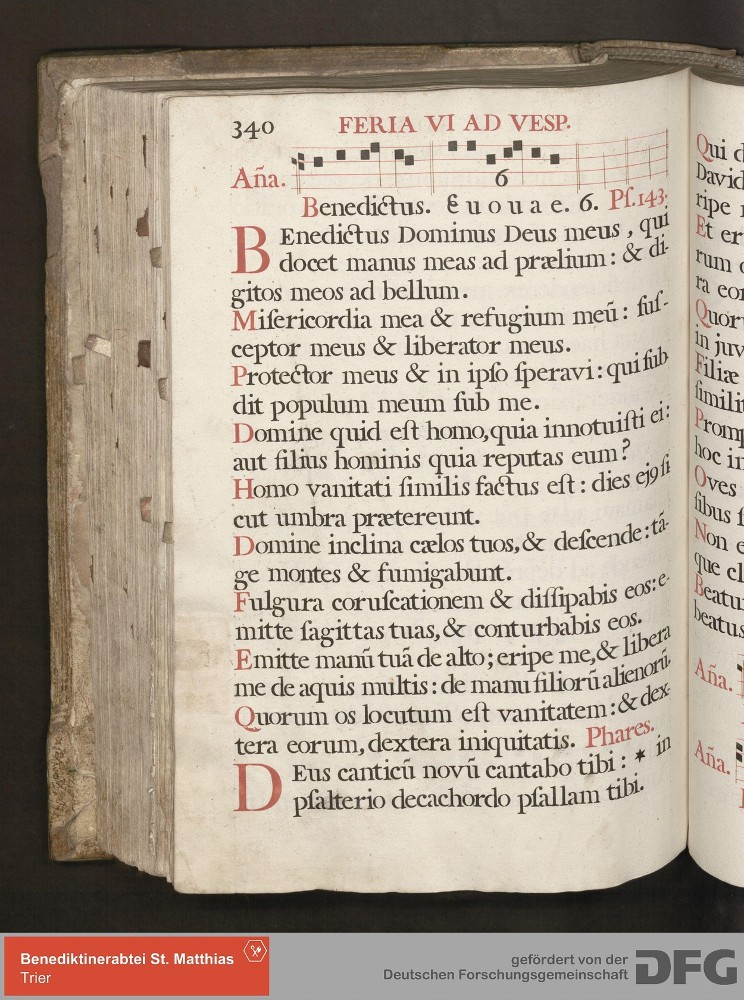 340 FERIA VI AD VESP.
Aña. 6
Benedictus. E u o u a e. 6. Pſ. 143.
BEnedictus Dominus Deus meus, qui
docet manus meas ad prælium: & di-
gitos meos ad bellum.
Miſericordia mea & refugium meũ: ſuſ-
ceptor meus & liberator meus.
Protector meus & in ipſo ſperavi: qui ſub
dit populum meum ſub me.
Domine quid eſt homo, quia innotuiſti ei:
aut filius hominis quia reputas eum?
Homo vanitati ſimilis factus eſt: dies ej9 ſi
cut umbra prætereunt.
Domine inclina cælos tuos, & deſcende: tã-
ge montes & fumigabunt.
Fulgura coruſcationem & diſſipabis eos: e-
mitte ſagittas tuas, & conturbabis eos.
Emitte manũ tuã de alto; eripe me, & libera
me de aquis multis: de manu filiorũ alienorũ.
Quorum os locutum eſt vanitatem: & dex-
tera eorum, dextera iniquitatis. Phares.
DEus canticũ novũ cantabo tibi: * in
pſalterio decachordo pſallam tibi.
Qui d
David
ripe
Et er
rum
ra eo
Quor
in juv
Filiæ
ſimilit
Promp
hoc in
Oves
ſibus ſ
Non e
que cl
Beatu
beatus
Aña.
Aña.
Benediktinerabtei St. Matthias
Trier
gefördert von der
Deutschen Forschungsgemeinschaft
DFG